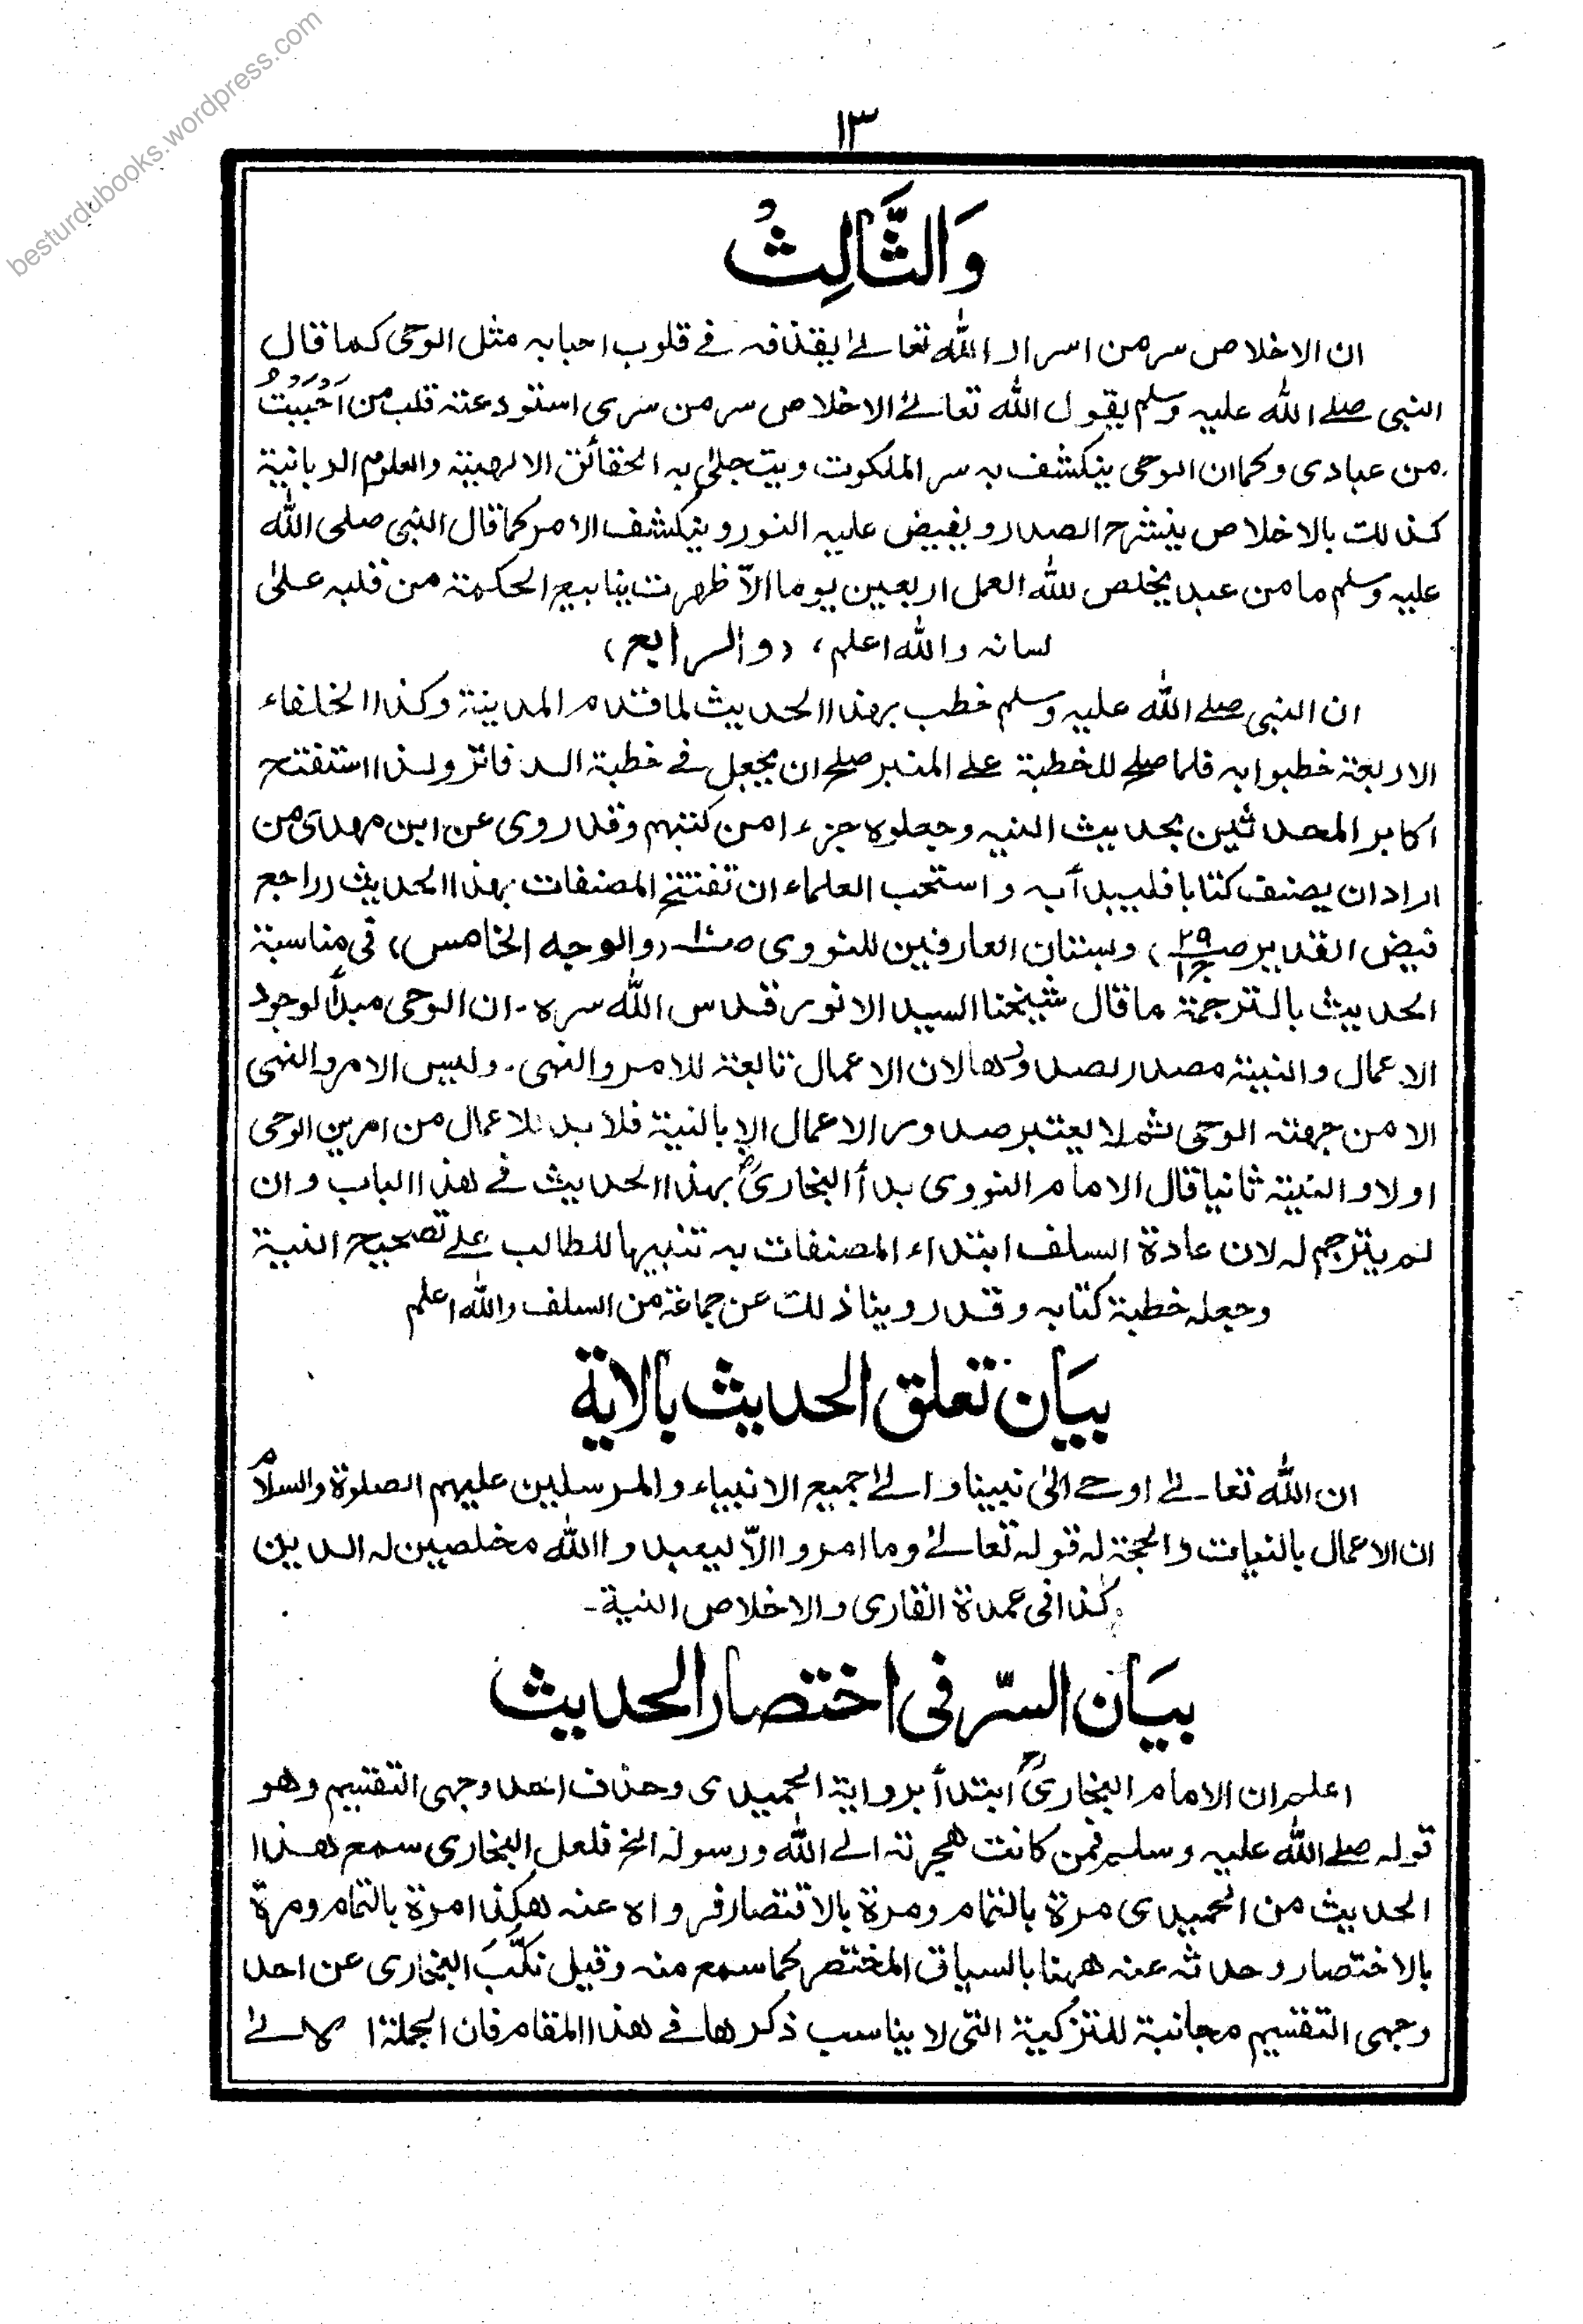 besturdubooks.wordpress.com
١٣
وَالثَّالِثُ
ان الاخلاص سر من اسرار الله تعالےٰ يقذفه فے قلوب احبابه مثل الوحی كما قال
النبی صلے الله علیہ وسلم يقول الله تعالےٰ الاخلاص سر من سری استودعته قلب من اَحْبَبْتُ
من عبادی وكما ان الوحی ينكشف به سر الملكوت ويتجلىٰ به الحقائق الالهية والعلوم الربانية
كذلك بالاخلاص ينشرح الصدر ويفيض عليه النور وينكشف الامر كما قال النبی صلی الله
علیہ وسلم ما من عبد يخلص لله العمل اربعين يوما الّا ظهرت ينابيع الحكمة من قلبه علىٰ
لسانه والله اعلم، (والرابع)
ان النبی صلے الله علیہ وسلم خطب بهذا الحديث لما قدم المدينة وكذا الخلفاء
الاربعة خطبوا به فلما صلح للخطبة علے المنبر صلح ان يجعل فے خطبة الدفاتر ولذا استفتح
اكابر المحدثين بحديث النيه وجعلوه جزءا من كتبهم وقد روی عن ابن مهدی من
اراد ان يصنف كتابا فليبدأ به واستحب العلماء ان تفتتح المصنفات بهذا الحديث (راجع
فيض القدير ص٢٩ ج١) وبستان العارفين للنووی (والوجه الخامس) فی مناسبة
الحديث بالترجمة ما قال شيخنا السيد الانور قدس الله سره - ان الوحی مبدأ لوجود
الاعمال والنية مصدر لصدورها لان الاعمال تابعة للامر والنهی - وليس الامر والنهی
الا من جهته الوحی ثم لا يعتبر صدور الاعمال الا بالنية فلا بد للاعمال من امرين الوحی
اولا والنية ثانيا قال الامام النووی بدأ البخاریؒ بهذا الحديث فے هذا الباب وان
لم يترجم له لان عادة السلف ابتداء المصنفات به تنبيها للطالب علے تصحيح النية
وجعله خطبة كتابه وقد روينا ذلك عن جماعة من السلف والله اعلم
بيَان تعلق الحديث بالاية
ان الله تعالےٰ اوحے الیٰ نبينا والےٰ جميع الانبياء والمرسلين عليهم الصلوة والسلام
ان الاعمال بالنيات والحجة له قوله تعالےٰ وما امروا الّا ليعبدوا الله مخلصين له الدين
كذا فی عمدة القاری والاخلاص النية -
بيَان السّر فی اختصار الحديث
اعلم ان الامام البخاریؒ ابتدأ برواية الحميدی وحذف احد وجهی التقسيم وهو
قوله صلے الله علیہ وسلم فمن كانت هجرته الے الله ورسوله الخ فلعل البخاری سمع هذا
الحديث من الحميدی مرة بالتمام ومرة بالاقتصار فرواه عنه هكذا مرة بالتمام ومرة
بالاختصار وحدثه عنه ههنا بالسياق المختصر كما سمع منه وقيل نكّبَ البخاری عن احد
وجهی التقسيم مجانبة للتزكية التی لا يناسب ذكرها فے هذا المقام فان الجملة